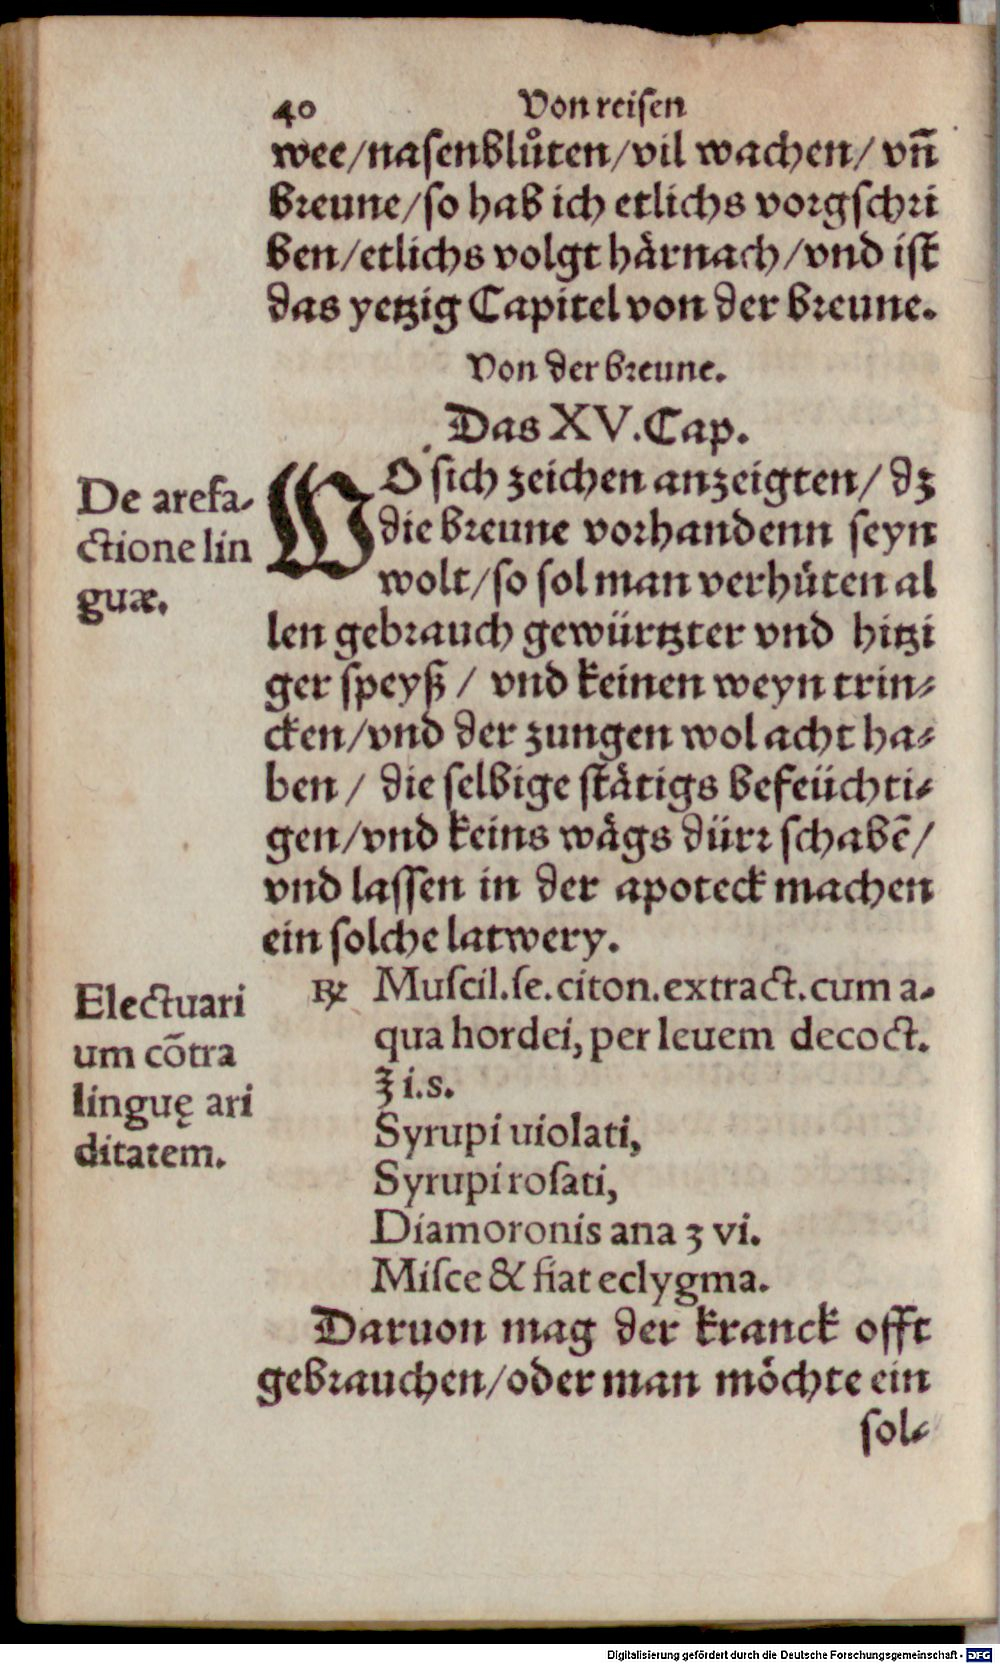 40 Von reisen
wee/nasenblůten/vil wachen/ vñ
breune/so hab ich etlichs vorgschri
ben/etlichs volgt hårnach/vnd ist
das yetzig Capitel von der breune.
Von der breune.
Das XV. Cap.
De arefa-
ctione lin
guæ.
WO sich zeichen anzeigten/ dz
die breune vorhandenn seyn
wolt/so sol man verhüten al
len gebrauch gewürtzter vnd hitzi
ger speyß / vnd keinen weyn trin-
cken/vnd der zungen wol acht ha-
ben / die selbige ståtigs befeüchti-
gen/vnd keins wågs dürr schabẽ/
vnd lassen in der apoteck machen
ein solche latwery.
Electuari
um cõtra
linguę ari
ditatem.
℞ Muscil. se. citon. extract. cum a-
qua hordei, per leuem decoct.
℥ i. s.
Syrupi uiolati,
Syrupi rosati,
Diamoronis ana ʒ vi.
Misce & fiat eclygma.
Daruon mag der kranck offt
gebrauchen/oder man möchte ein
sol-
Digitalisierung gefördert durch die Deutsche Forschungsgemeinschaft - DFG